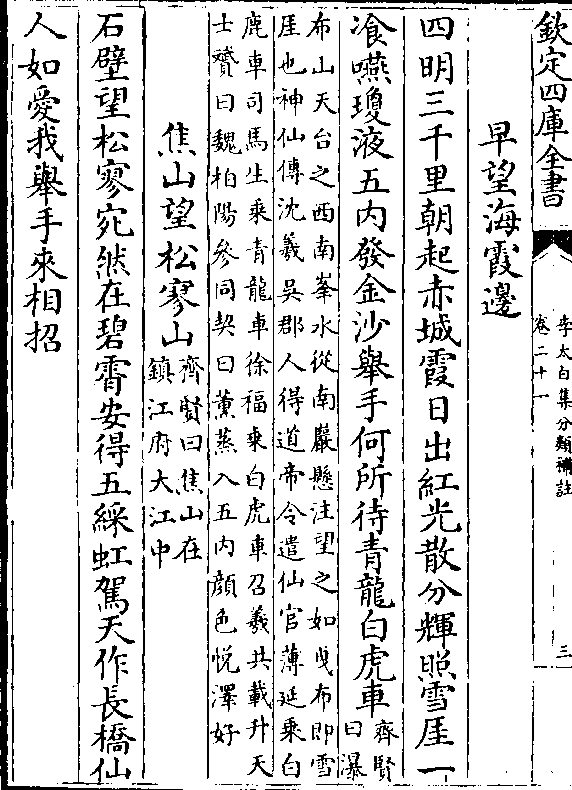 欽定四庫全書
李太白集分類補註
卷二十一
三
早望海霞邊
四明三千里朝起赤城霞日出紅光散分輝照雪厓一
飡嚥瓊液五内發金沙舉手何所待青龍白虎車齊賢
曰瀑
布山天台之西南峯水從南巖懸注望之如曳布即雪
厓也神仙傳沈羲吳郡人得道帝令遣仙官薄延乘白
鹿車司馬生乘青龍車徐福乘白虎車召羲共載升天
士贇曰魏柏陽參同契曰薫蒸入五内顔色悅澤好
焦山望松寥山齊賢曰焦山在
鎮江府大江中
石壁望松寥宛然在碧霄安得五綵虹駕天作長橋仙
人如愛我舉手來相招